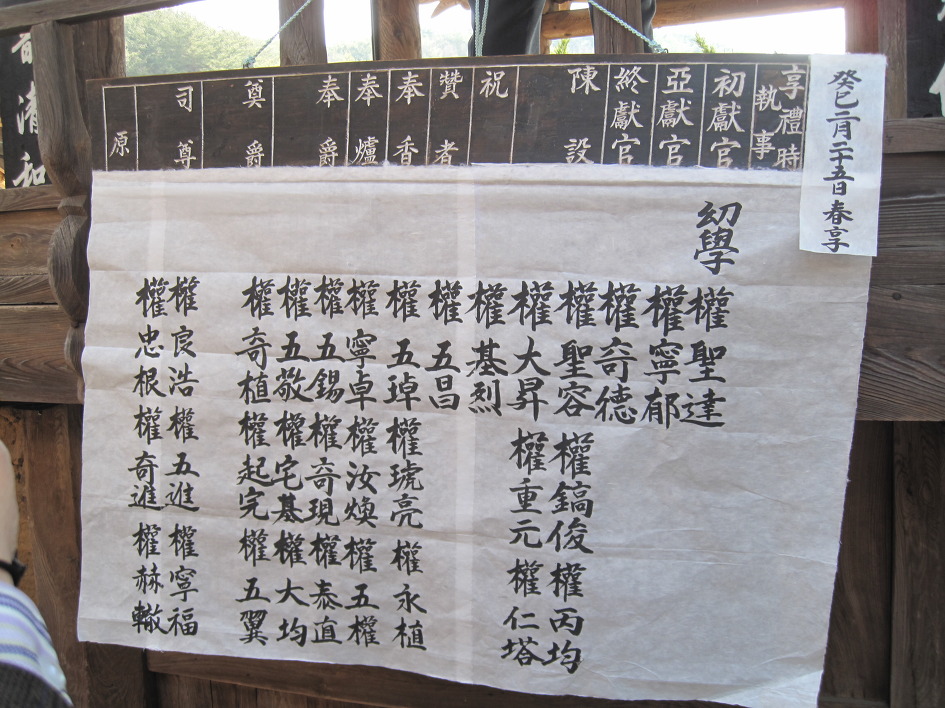 癸巳二月二十五日春享
享禮時
執事
初獻官
亞獻官
終獻官
陳設
祝
贊者
奉香
奉爐
奉爵
奠爵
司尊
原
幼學
權聖達
權寧郁
權奇德
權聖容 權鎬俊 權丙均
權大昇 權重元 權仁塔
權基烈
權五昌
權五琸 權琥亮 權永植
權寧卓 權汝煥 權五權
權五錫 權奇現 權泰直
權五敬 權宅基 權大均
權奇植 權起完 權五翼
權良浩 權五進 權寧福
權忠根 權奇進 權赫轍
清和